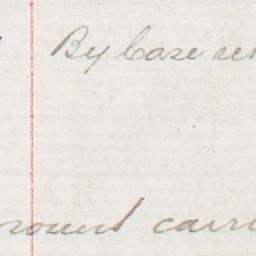 By Case re
mount carri